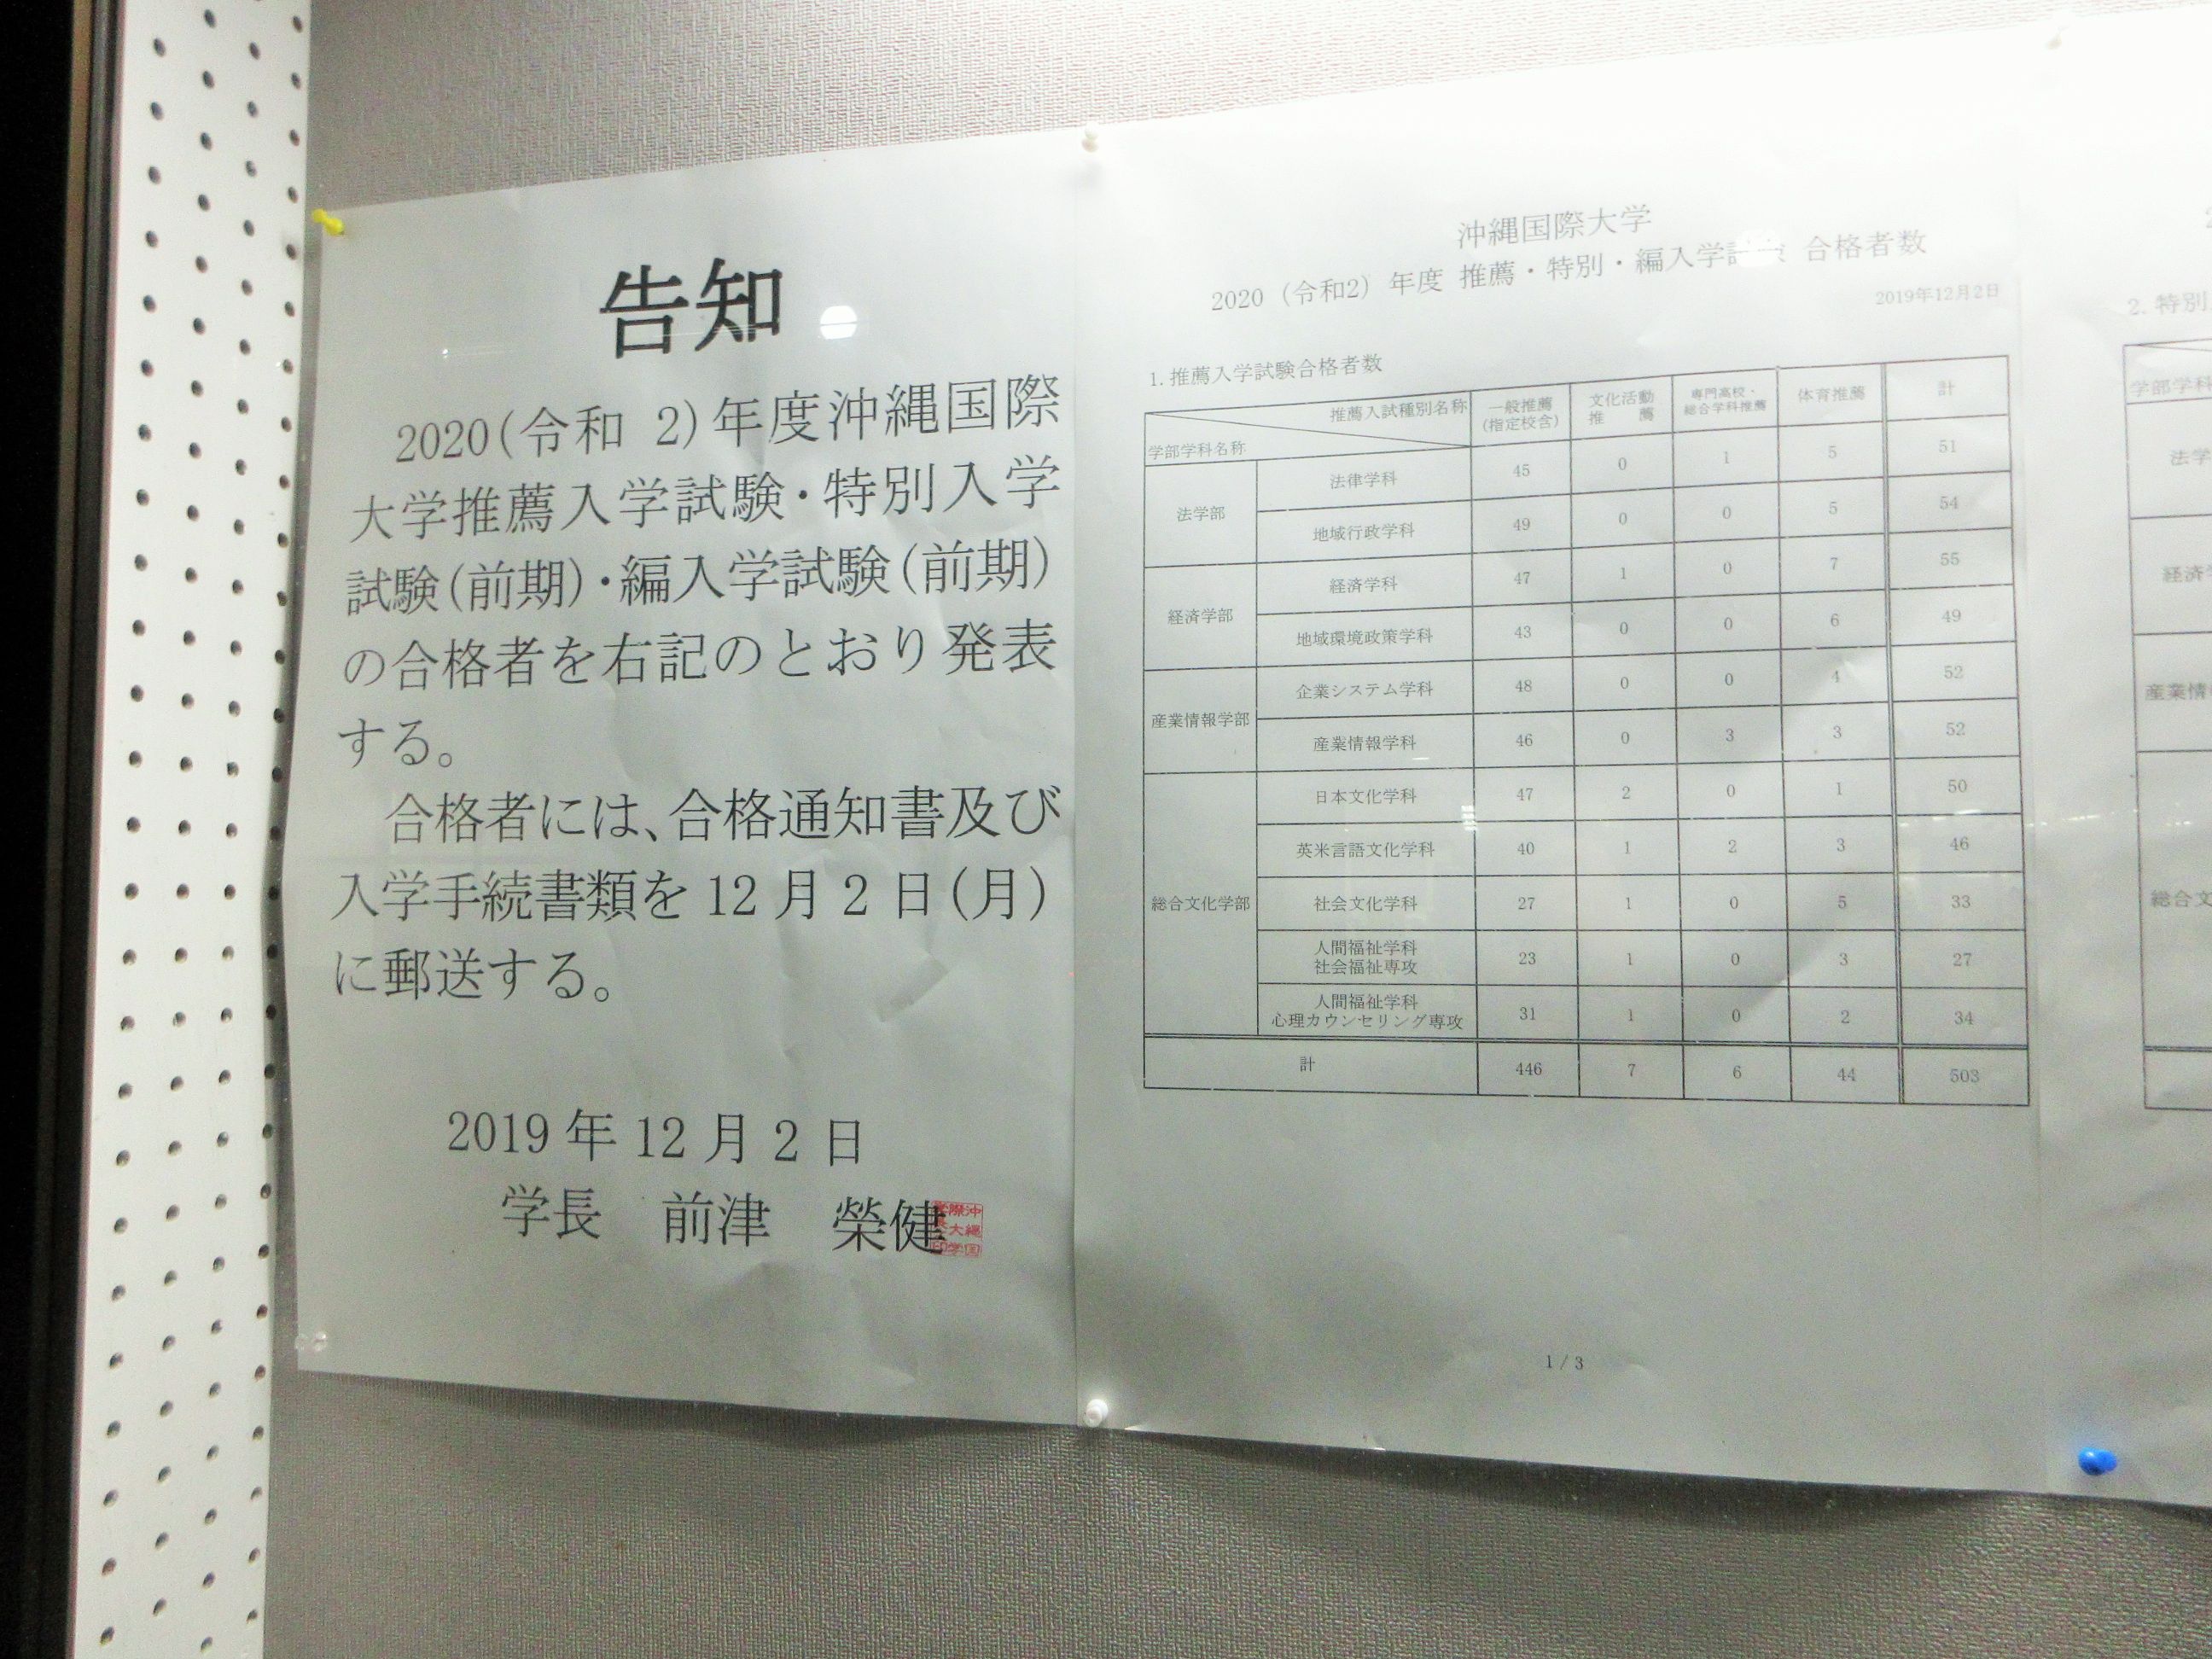 告知
2020(令和 2)年度沖縄国際
大学推薦入学試験・特別入学
試験(前期)・編入学試験(前期)
の合格者を右記のとおり発表
する。
合格者には、合格通知書及び
入学手続書類を 12 月 2 日(月)
に郵送する。
2019 年 12 月 2 日
学長 前津 榮健
沖縄国際大学
2020（令和2）年度 推薦・特別・編入学 合格者数
2019年12月2日
1. 推薦入学試験合格者数
推薦入試種別名称
学部学科名称
一般推薦
(指定校含)
文化活動
推 薦
専門高校・
総合学科推薦
体育推薦
計
法学部
法律学科 45 0 1 5 51
地域行政学科 49 0 0 5 54
経済学部
経済学科 47 1 0 7 55
地域環境政策学科 43 0 0 6 49
産業情報学部
企業システム学科 48 0 0 4 52
産業情報学科 46 0 3 3 52
総合文化学部
日本文化学科 47 2 0 1 50
英米言語文化学科 40 1 2 3 46
社会文化学科 27 1 0 5 33
人間福祉学科
社会福祉専攻 23 1 0 3 27
人間福祉学科
心理カウンセリング専攻 31 1 0 2 34
計 446 7 6 44 503
1 / 3
2. 特別
学部学科
法学
経済学
産業情
総合文